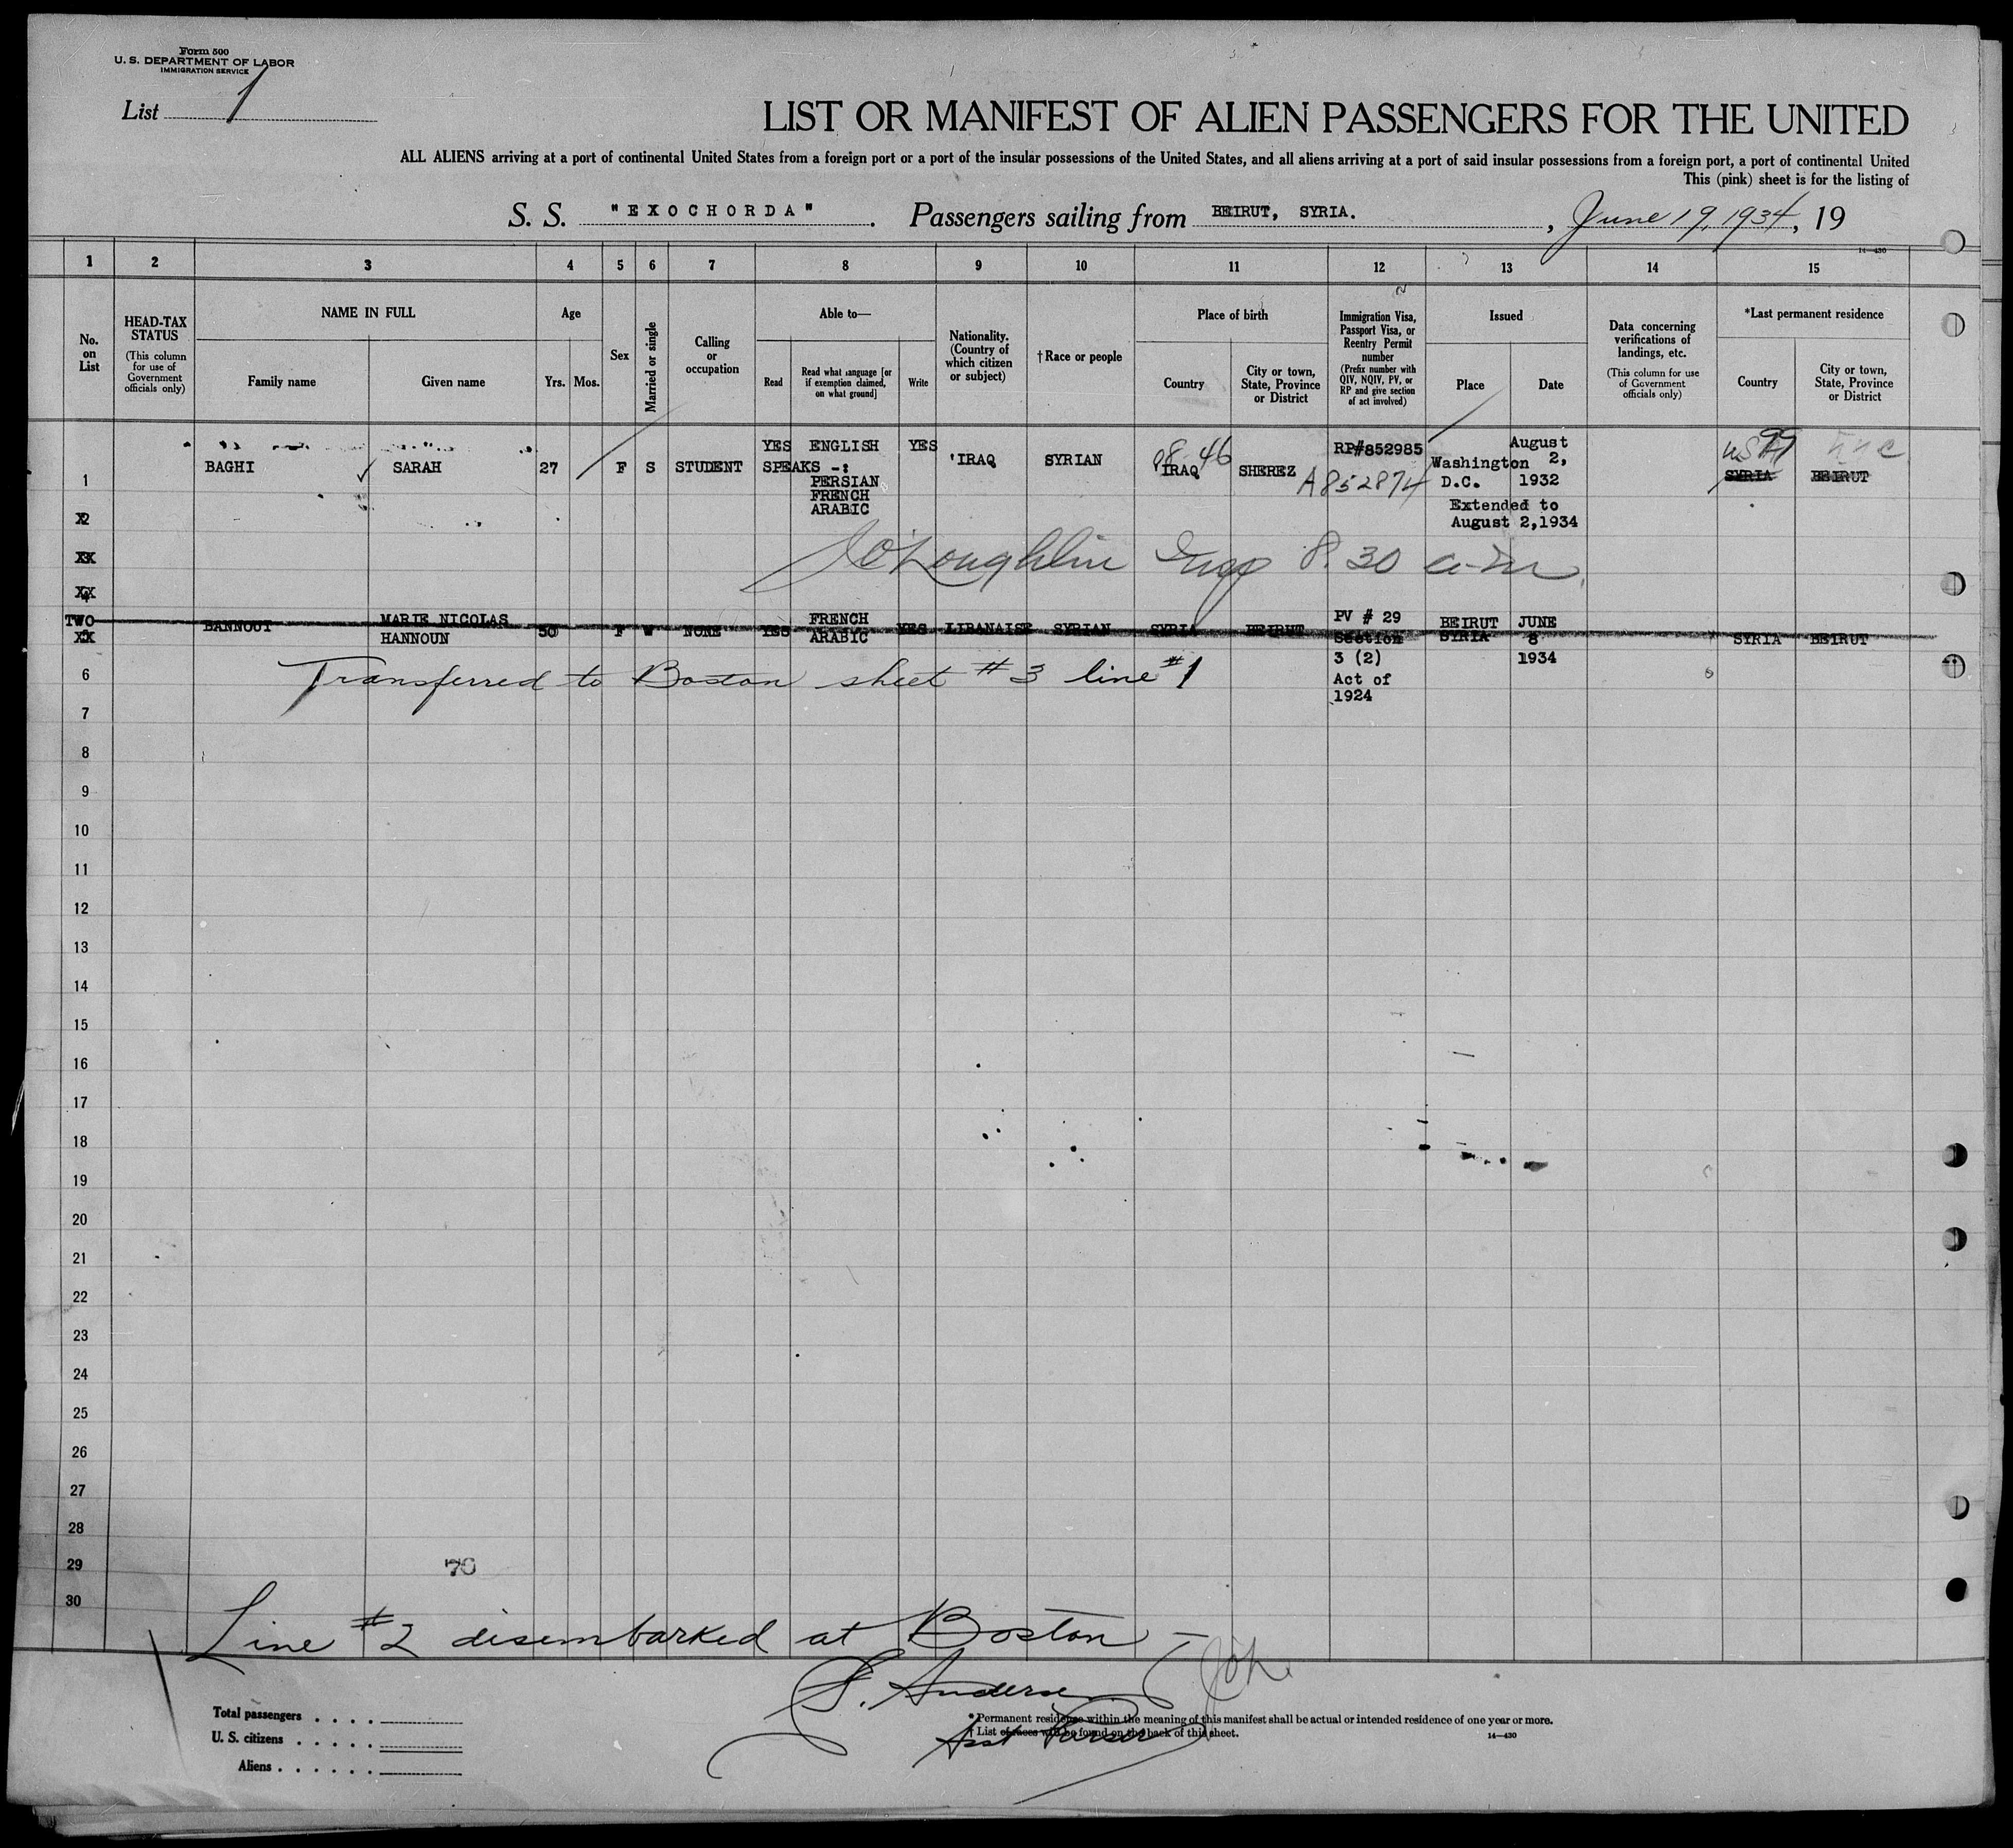 Form 500
U. S. DEPARTMENT OF LABOR
IMMIGRATION SERVICE
List 1
LIST OR MANIFEST OF ALIEN PASSENGERS FOR THE UNITED
ALL ALIENS arriving at a port of continental United States from a foreign port or a port of the insular possessions of the United States, and all aliens arriving at a port of said insular possessions from a foreign port, a port of continental United
This (pink) sheet is for the listing of
S. S. "EXOCHORDA". Passengers sailing from BEIRUT, SYRIA., June 19, 1934, 19
14—430
1 2 3 4 5 6 7 8 9 10 11 12 13 14 15
No. on List
HEAD-TAX STATUS
(This column for use of Government officials only)
NAME IN FULL
Family name
Given name
Age
Yrs. Mos.
Sex
Married or single
Calling or occupation
Able to—
Read
Read what language [or if exemption claimed, on what ground]
Write
Nationality. (Country of which citizen or subject)
†Race or people
Place of birth
Country
City or town, State, Province or District
Immigration Visa, Passport Visa, or Reentry Permit number
(Prefix number with QIV, NQIV, PV, or RP and give section of act involved)
Issued
Place
Date
Data concerning verifications of landings, etc.
(This column for use of Government officials only)
*Last permanent residence
Country
City or town, State, Province or District
YES ENGLISH YES RP#852985 August
BAGHI SARAH 27 F S STUDENT SPEAKS -: IRAQ SYRIAN 08-46 IRAQ SHEREZ Washington 2, USA 99
1 PERSIAN A852874 D.C. 1932 SYRIA BEIRUT
FRENCH
ARABIC Extended to
2 August 2,1934
3 O'Loughlin 8.30 a-m
4
TWO BANNOUT MARIE NICOLAS 50 F W NONE YES FRENCH YES LIBANAISE SYRIAN SYRIA BEIRUT PV # 29 BEIRUT JUNE
XX HANNOUN ARABIC Section SYRIA 8 SYRIA BEIRUT
3 (2) 1934
6 Transferred to Boston sheet #3 line #1 Act of
1924
7
8
9
10
11
12
13
14
15
16
17
18
19
20
21
22
23
24
25
26
27
28
29 70
30
Line #2 disembarked at Boston —
S. Andersen
Asst Purser
Total passengers . . . .
U. S. citizens . . . . .
Aliens . . . . . .
* Permanent residence within the meaning of this manifest shall be actual or intended residence of one year or more.
† List of races will be found on the back of this sheet.
14—430